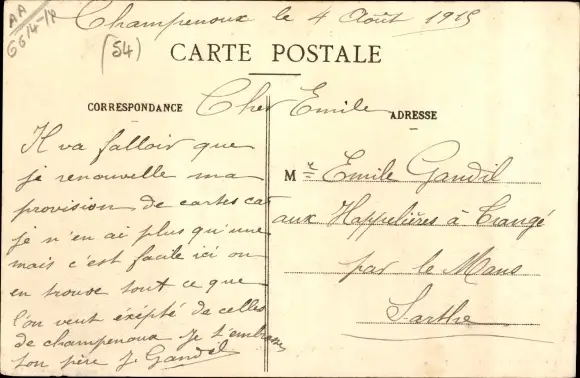 AA
GG14-18
Champenoux le 4 Août 1915
(54)
CARTE POSTALE
CORRESPONDANCE
Cher Emile
ADRESSE
Il va falloir que
je renouvelle ma
provision de cartes car
je n'en ai plus qu'une
mais c'est facile ici on
en trouve tout ce que
l'on veut exépté de celles
de champenoux Je t'embrasse
ton père J. Gandil
Mr Emile Gandil
aux Happelières à Trangé
par le Mans
Sarthe